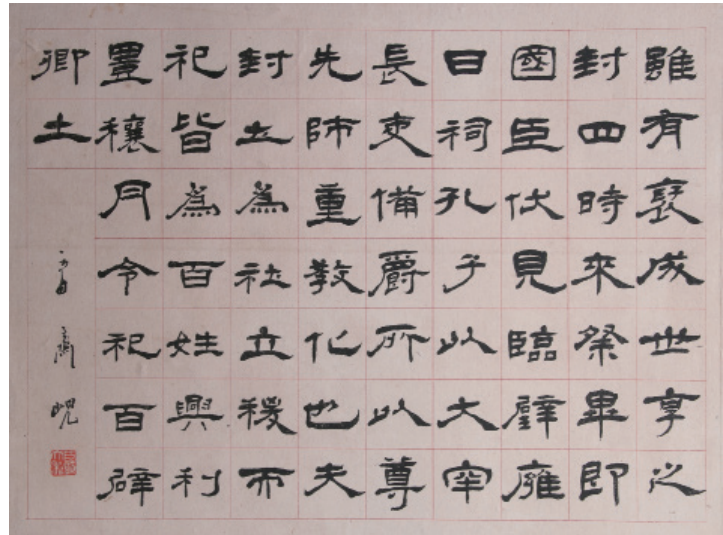 雖有褒成世享之
封四時來祭畢即
國臣伏見臨璧雍
日祠孔子以大宰
長吏備爵所以尊
先師重教化也夫
封土為社立稷而
祀皆為百姓興利
豊穰月令祀百辟
卿士